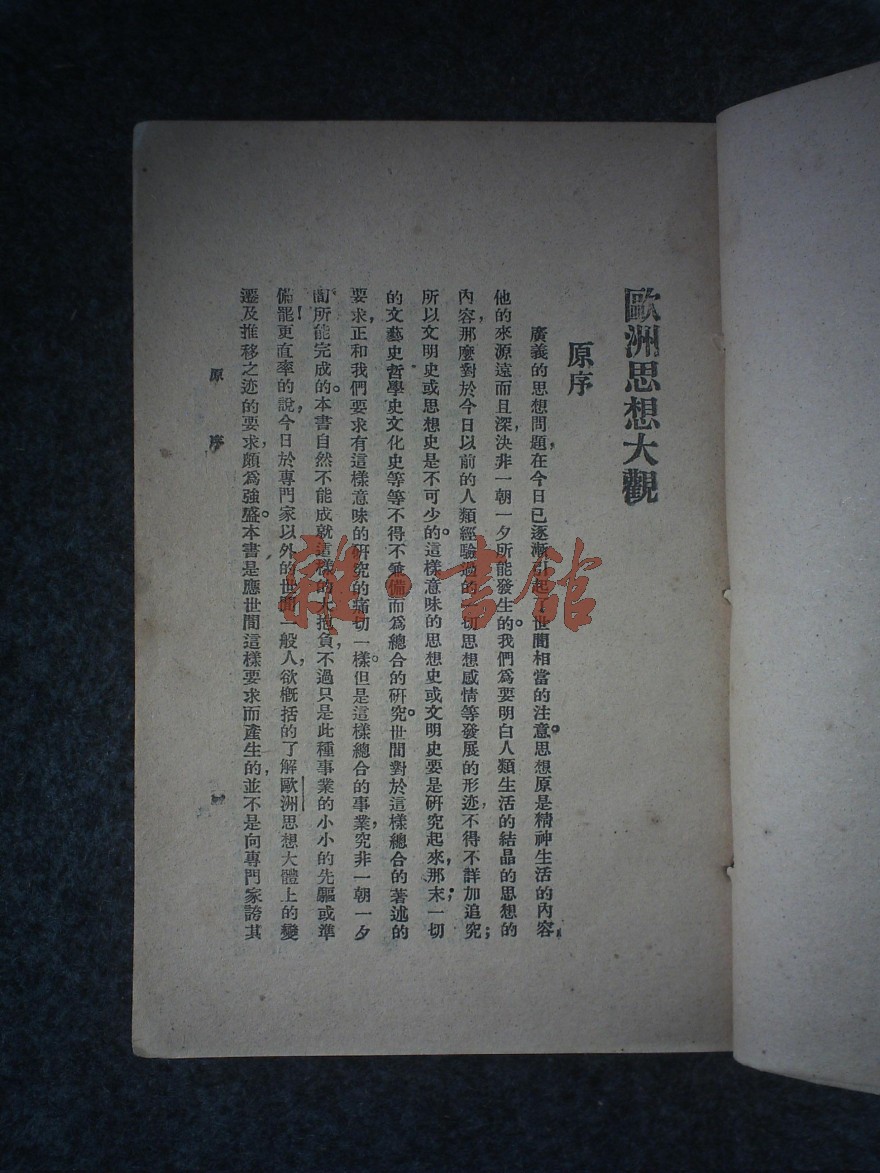 歐洲思想大觀
原序
廣義的思想問題，在今日已逐漸引起了世間相當的注意。思想原是精神生活的內容，
他的來源遠而且深，決非一朝一夕所能發生的。我們爲要明白人類生活的結晶的思想的
內容，那麼對於今日以前的人類經驗過的一切思想感情等發展的形迹，不得不詳加追究；
所以文明史或思想史是不可少的。這樣意味的思想史或文明史要是研究起來，那末一切
的文藝史哲學史文化史等等不得不兼備而爲總合的研究。世間對於這樣總合的著述的
要求，正和我們要求有這樣意味的研究的痛切一樣。但是這樣總合的事業，究非一朝一夕
間所能完成的。本書自然不能成就這樣的大抱負，不過只是此種事業的小小的先驅或準
備罷！更直率的說，今日於專門家以外的世間一般人，欲概括的了解歐洲思想大體上的變
遷及推移之迹的要求，頗爲強盛。本書是應世間這樣要求而產生的，並不是向專門家誇其
原序
雜·書館